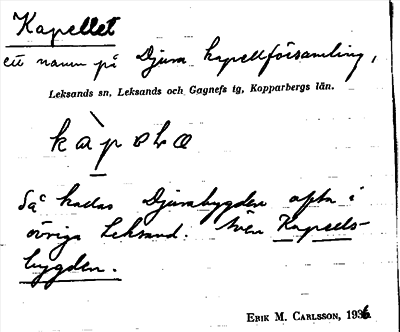 Kapellet
ett namn på Djura kapellförsamling,
Leksands sn, Leksands och Gagnefs tg, Kopparbergs län.
Så kallas Djurabygden ofta i
övriga Leksand. Även Kapells-
bygden.
ERIK M. CARLSSON, 1936